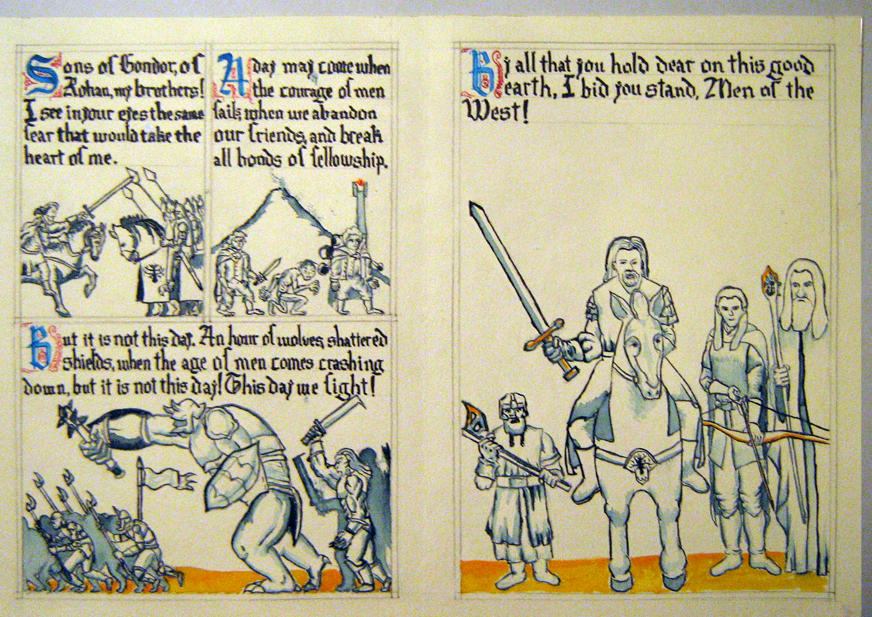 Sons of Gondor, of
Rohan, my brothers!
I see in your eyes the same
fear that would take the
heart of me.
A day may come when
the courage of men
fails when we abandon
our friends, and break
all bonds of fellowship.
But it is not this day. An hour of wolves, shattered
shields, when the age of men comes crashing
down, but it is not this day! This day we fight!
By all that you hold dear on this good
earth, I bid you stand, Men of the
West!